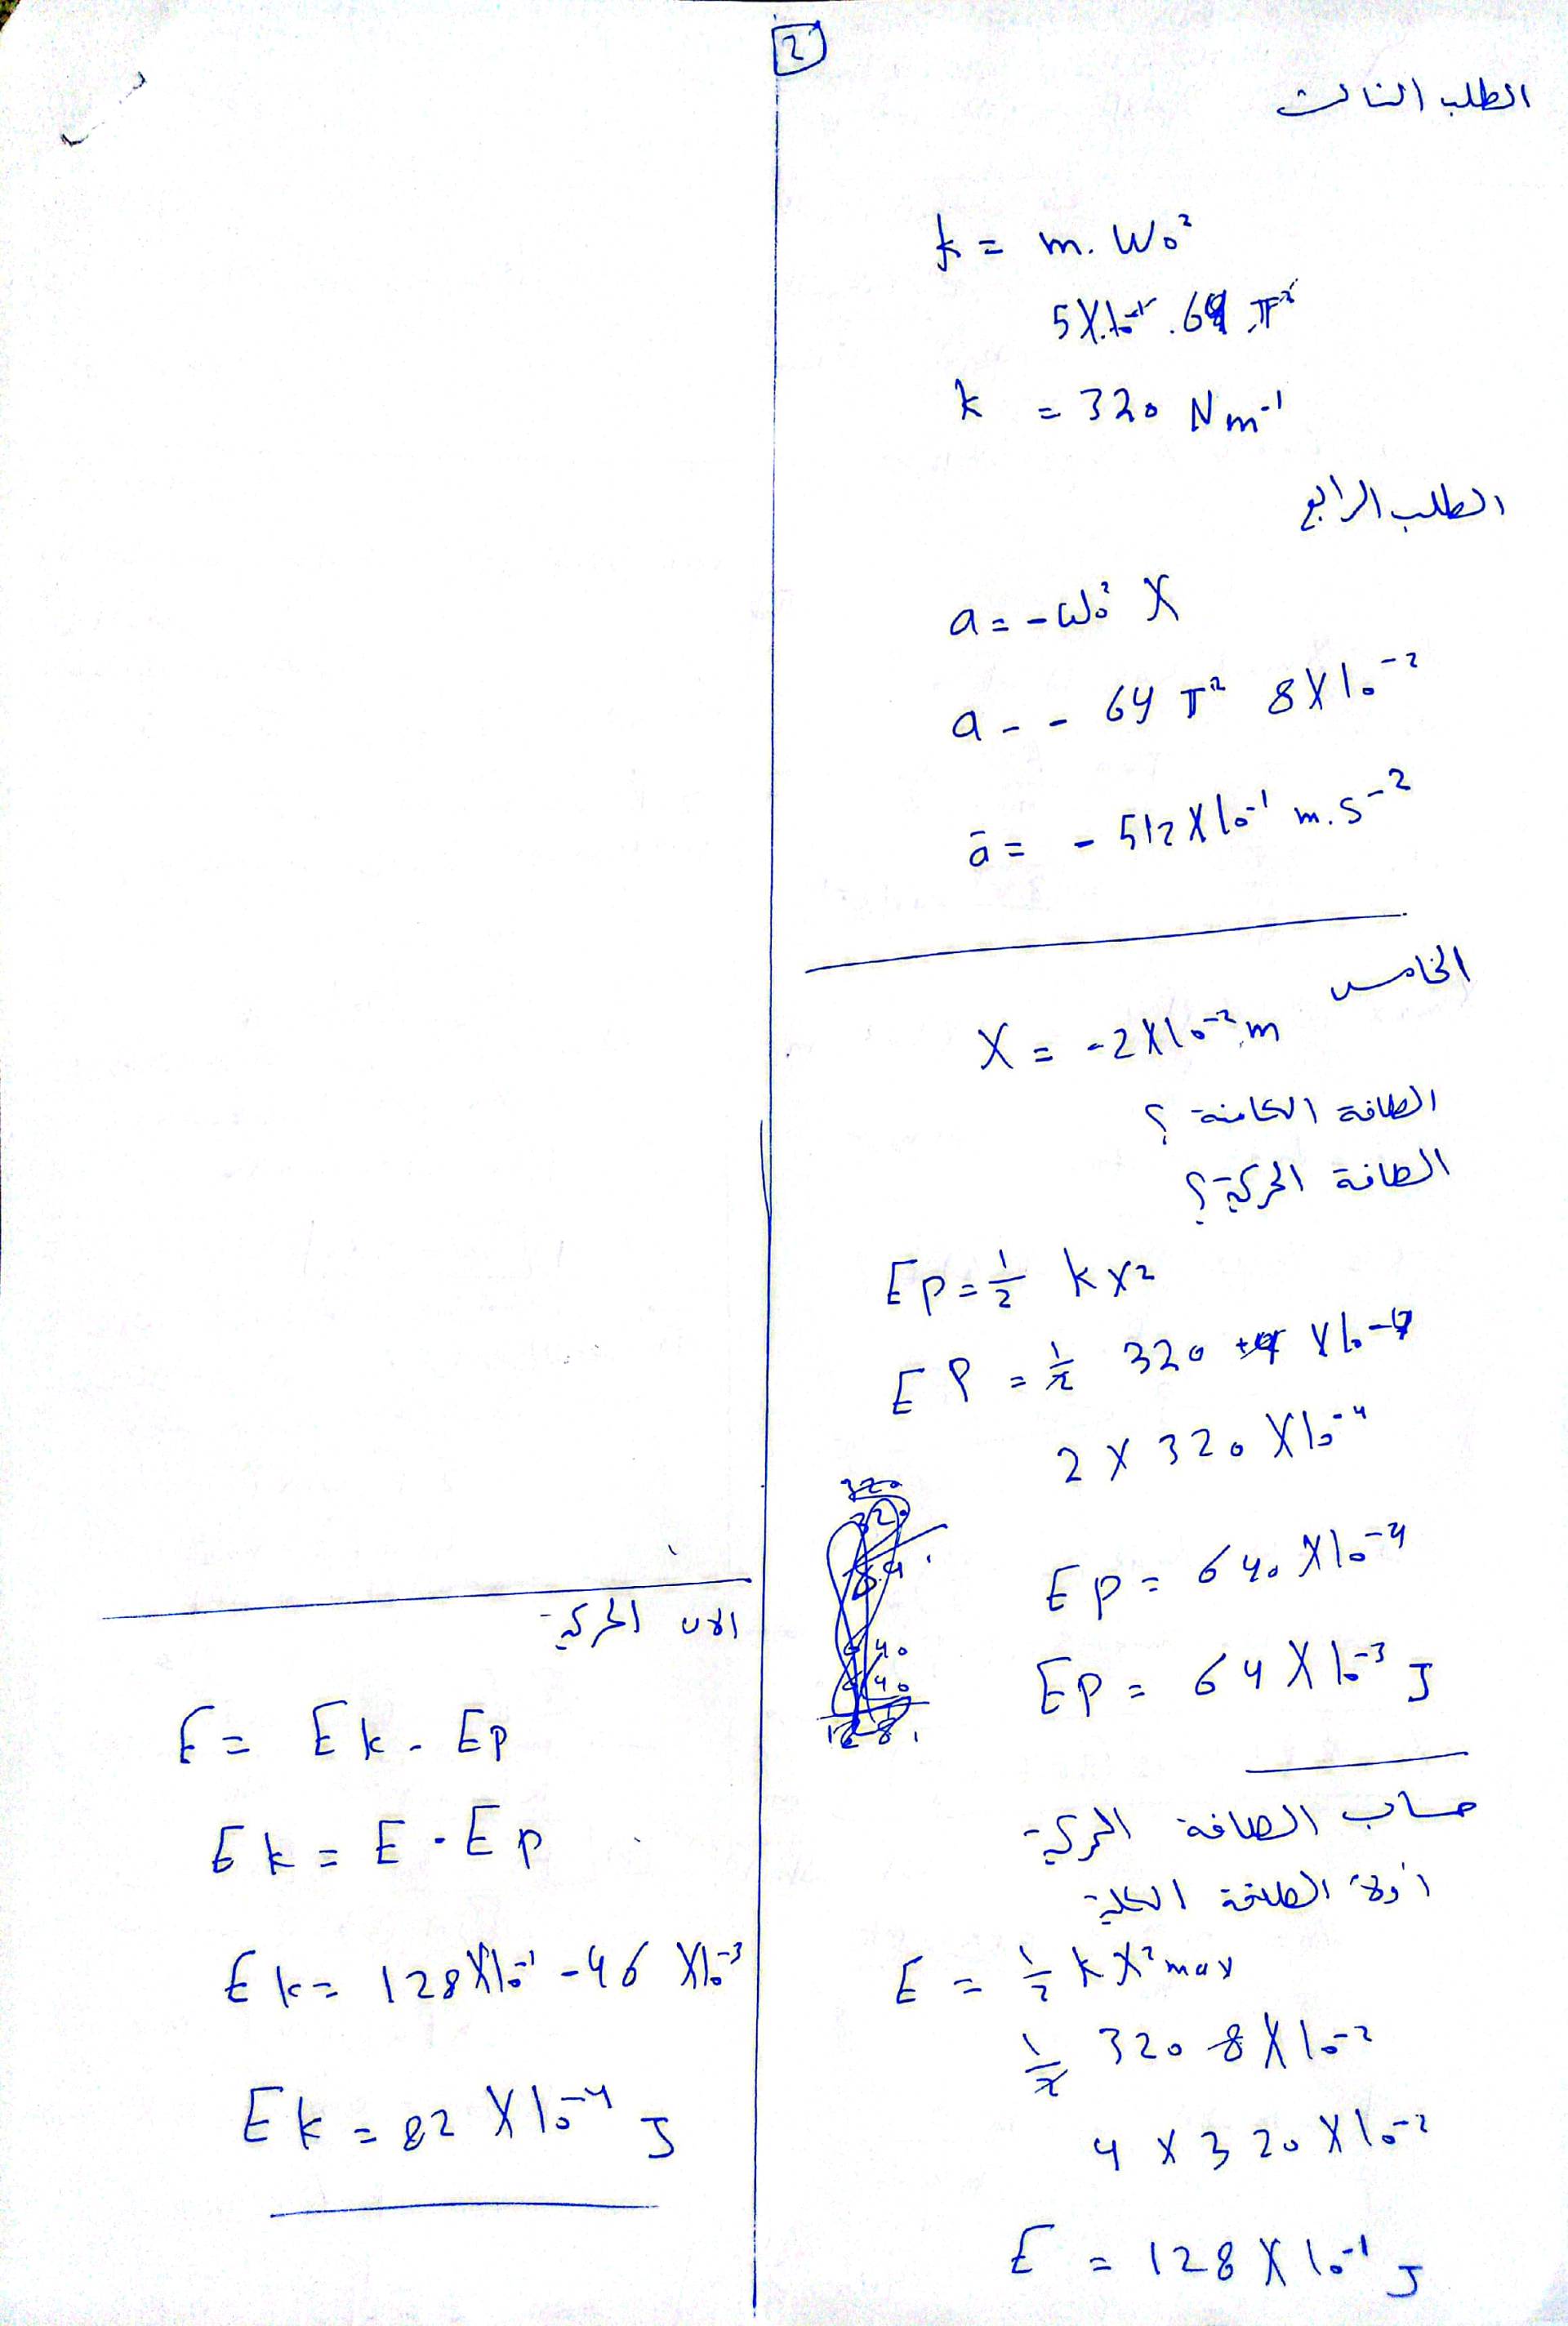 2
الطلب الثالث
k = m. W₀²
5X10⁻¹ .64 π²
k = 320 Nm⁻¹
الطلب الرابع
a = -ω₀² X
a - - 64 π² 8X10⁻²
ā = - 512X10⁻¹ m.s⁻²
الخامس
X = -2X10⁻² m
الطاقة الكامنة ؟
الطاقة الحركية ؟
Ep = 1/2 k x2
EP = 1/2 320 4 X10⁻⁴
2 X 320 X10⁻⁴
Ep = 640 X10⁻⁴
Ep = 64 X10⁻³ J
حساب الطاقة الحركية
أولاً الطاقة الكلية
E = 1/2 k X² max
1/2 320 8X10⁻²
4 X 320 X10⁻²
E = 128 X10⁻¹ J
الان الحركية
E = Ek - Ep
Ek = E - Ep
Ek = 128X10⁻¹ - 46 X10⁻³
Ek = 82 X10⁻⁴ J